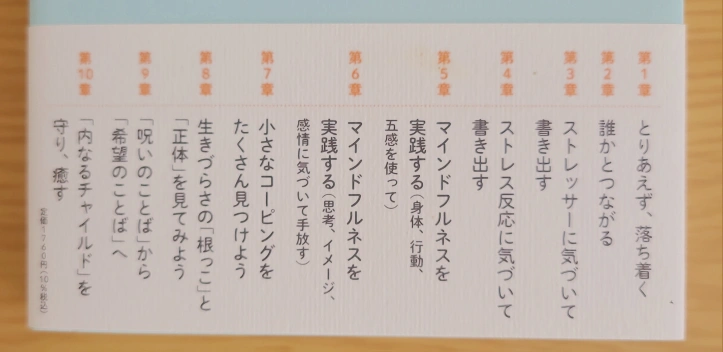 第1章
とりあえず、落ち着く
第2章
誰かとつながる
第3章
ストレッサーに気づいて
書き出す
第4章
ストレス反応に気づいて
書き出す
第5章
マインドフルネスを
実践する(身体、行動、
五感を使って)
第6章
マインドフルネスを
実践する(思考、イメージ、
感情に気づいて手放す)
第7章
小さなコーピングを
たくさん見つけよう
第8章
生きづらさの「根っこ」と
「正体」を見てみよう
第9章
「呪いのことば」から
「希望のことば」へ
第10章
「内なるチャイルド」を
守り、癒す
定価1760円(10%税込)